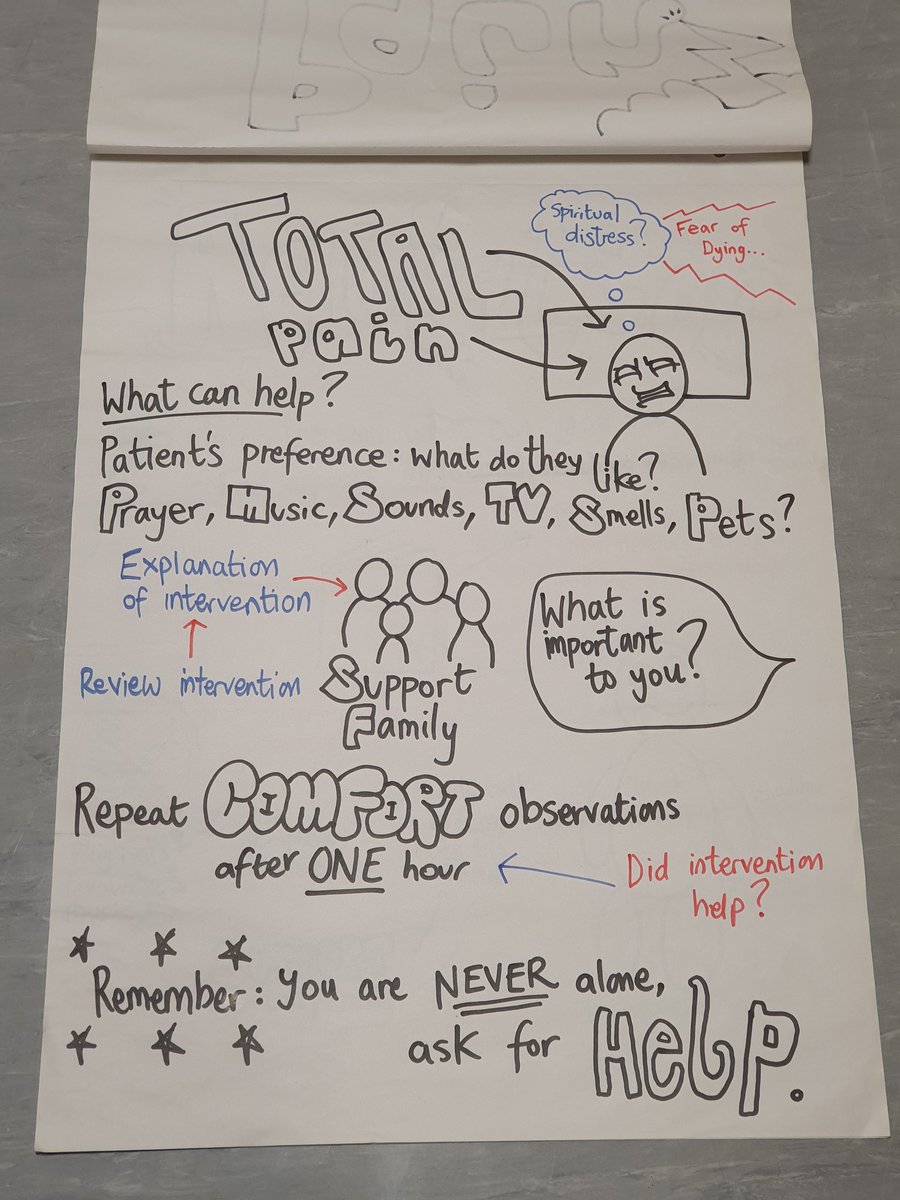 TOTAL
pain
Spiritual
distress?
Fear of
Dying...
What can help?
Patient's preference: what do they like?
Prayer, Music, Sounds, TV, Smells, Pets?
Explanation
of intervention
Review intervention
Support
Family
What is
important
to you?
Repeat COMFORT observations
after ONE hour
Did intervention
help?
Remember: You are NEVER alone,
ask for HELP.